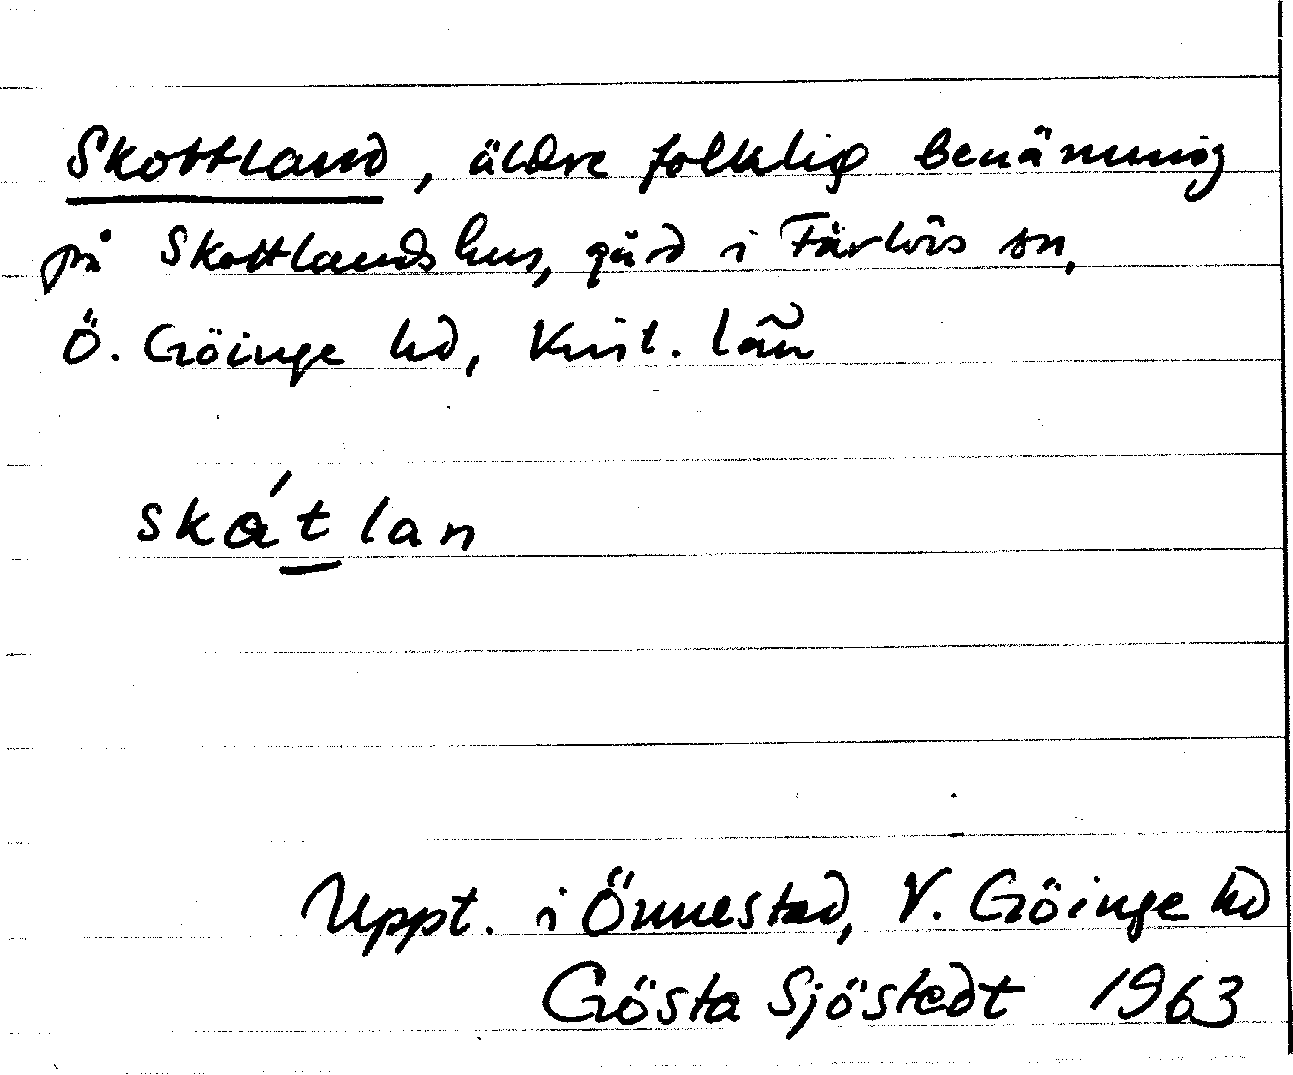 Skottland, äldre folklig benämning
på Skottlandshus, gård i Färlövs sn,
Ö. Göinge hd, Krist. län
skátlan
Uppt. i Önnestad, V. Göinge hd
Gösta Sjöstedt 1963